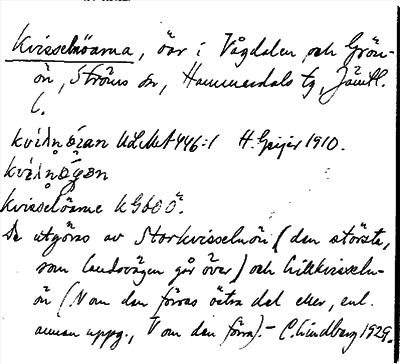 Kvisselöarna, öar i Vågdalen och Grön-
ön, Ströms sn, Hammerdals tg, Jämtl.
l.
ULMA 446:1 H. Geijer 1910.
Kvisselöarne
De utgöras av Storkvisselnön (den största,
som landsvägen går över) och Lillkvisseln-
ön (N om den förras östra del eller, enl.
annan uppg., V om den förra). – C. Lindberg 1929.